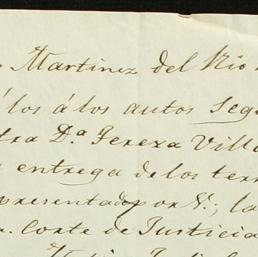 Martinez del Rio
á los á los autos Seg
tra D.ª Tereza Villa
entrega de los terr
presentado por V.; la
Corte de Justicia